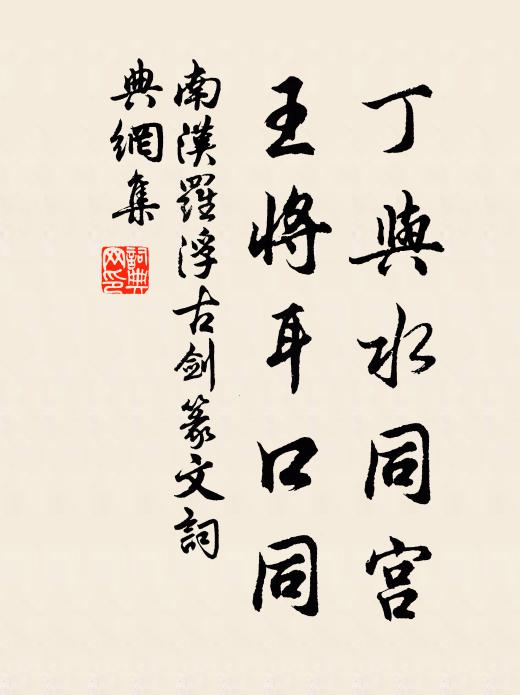 丁與水同宮
王將耳口同
南漢羅浮古劍篆文詞
典網集
詞典
网印